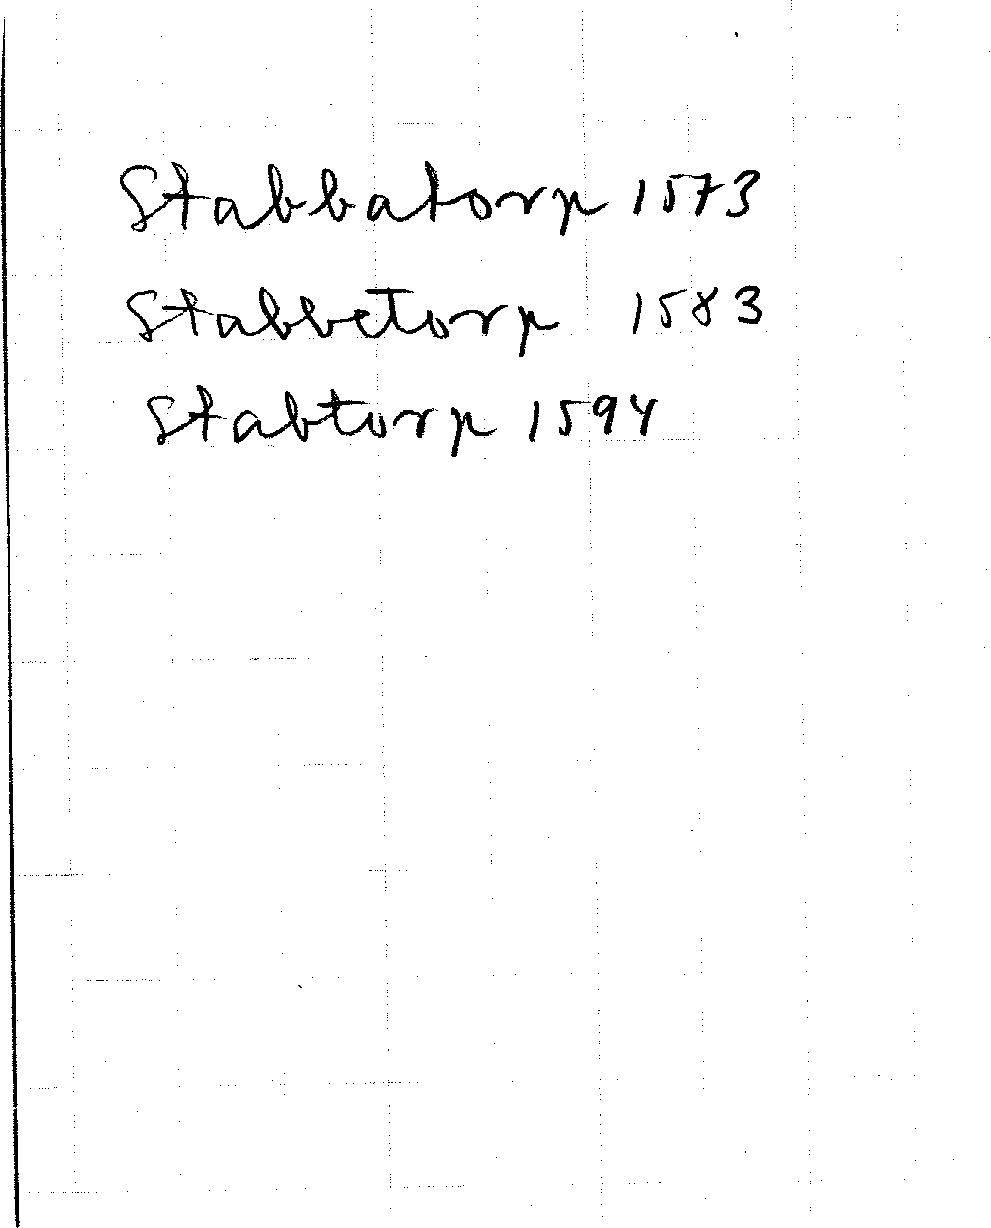 Stabbatorp 1573
Stabbetorp 1583
Stabtorp 1594